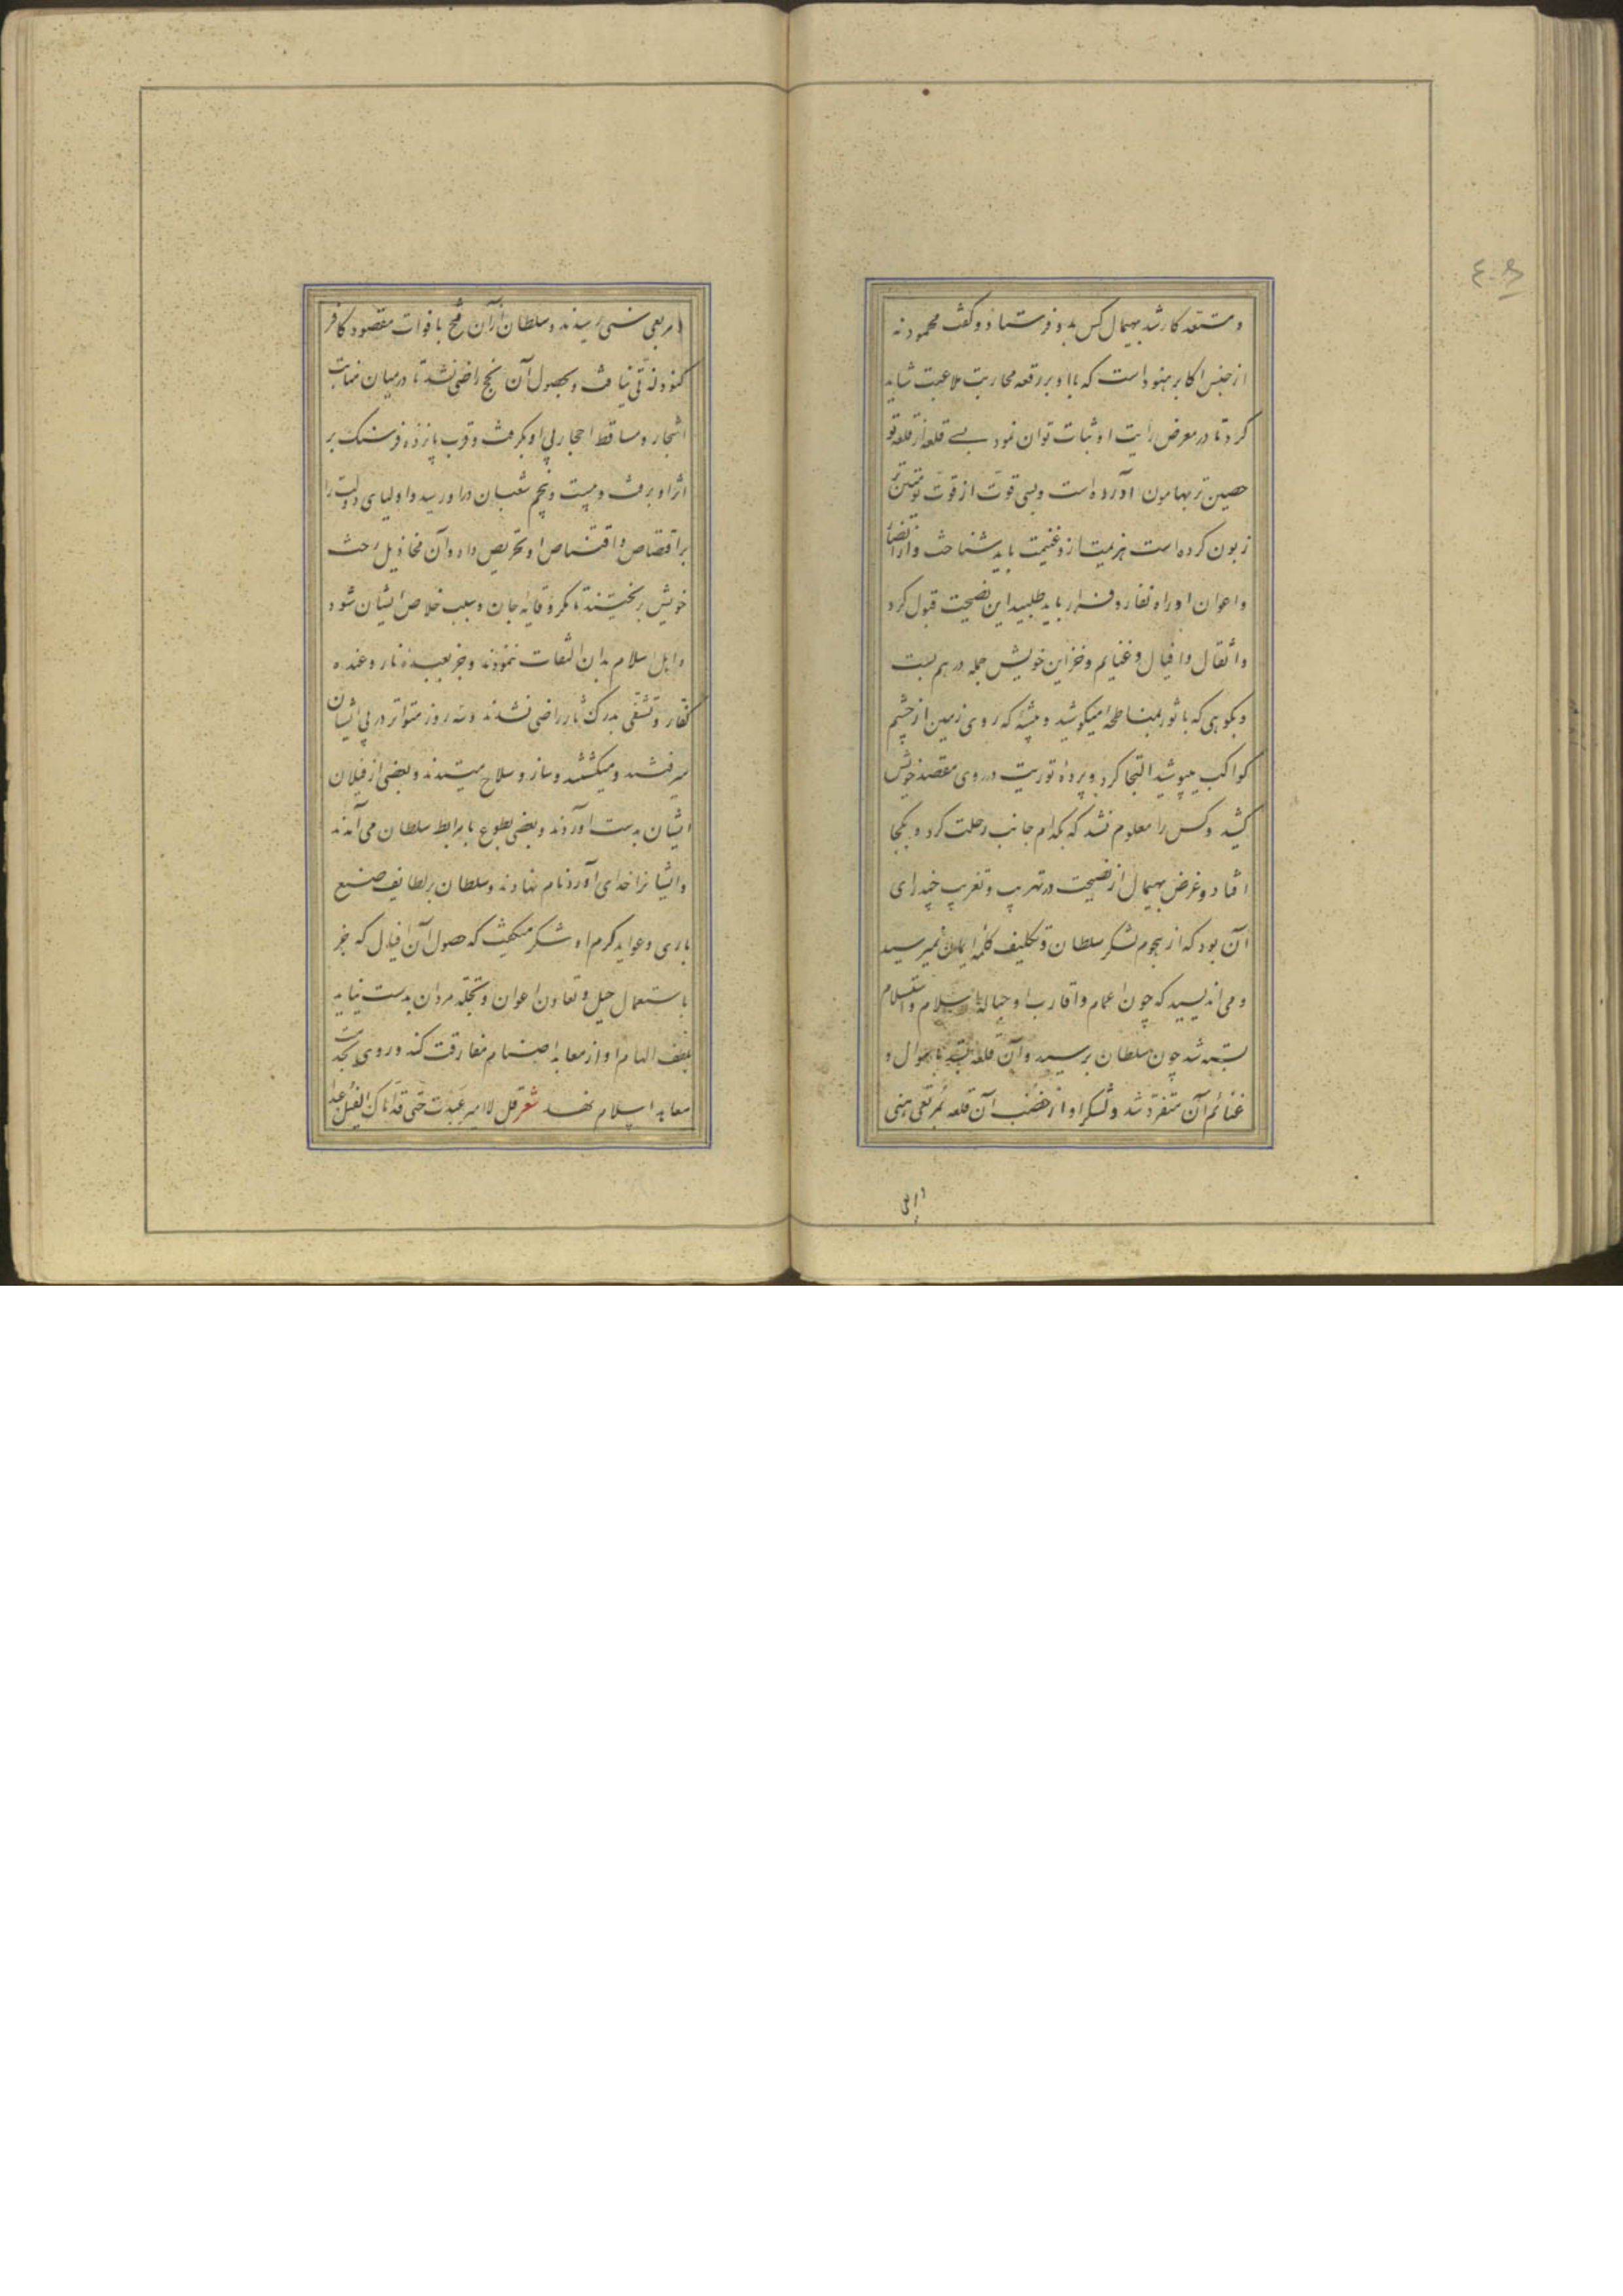 و مستعد کار شد بهیمال کس بدو فرستاد و گفت محمود نه
از جنس اکابر هنود است که با او بر رقعه محاربت ملاعبت شاید
کرد تا در معرض رایت او ثبات توان نمود بسی قلعه از قلعه تو
حصین تر بهامون آورده است و بسی قوت از قوت تو متین تر
زبون کرده است هزیمت ازو غنیمت باید شناخت و از
و اعوان او راه نفار و فرار باید طلبید این نصیحت قبول کرد
و أثقال و افیال و غنایم و خزاین خویش جمله در هم بست
و بکوهی که با ثور بمناطحه میکوشید و بیشه که روی زمین از چشم
کواکب میپوشید التجا کرد و پرده توریت در روی مقصد خویش
کشید و کس را معلوم نشد که بکدام جانب رحلت کرد و بکجا
افتاد و غرض بهیمال از نصیحت در تهریب و تغریب چندرای
آن بود که از هجوم لشکر سلطان و تکلیف کلمه ایمان میترسید
و می اندیشید که چون اعمام و اقارب او حباله باسلام و استسلام
بسته شد چون سلطان برسید و آن قلعه بستد باموال و
غنائم آن متفرد شد و لشکر او از خصب آن قلعه بمرتعی هنی
و مر
۴۰۵
مربعی سنی رسیدند و سلطان از آن فتح با فوات مقصود کافر
کنود لذتی نیافت و بحصول آن نجح راضی نشد تا در میان منابت
اشجار و مساقط احجار پی او بگرفت و قرب پانزده فرسنگ بر
اثر او برفت و بیست و پنجم شعبان در او رسید و اولیای دولت را
بر اقتصاص و اقتناص او تحریص داد و آن مخاذیل رخت
خویش بریختند تا مگر وقایه جان و سبب خلاص ایشان شود
و اهل اسلام بدان التفات ننمودند و جز بعبده نار و عنده
کفار و تشفی بدرک ثار راضی نشدند و سه روز متواتر در پی ایشان
میرفتند و میکشتند و ساز و سلاح میستدند و بعضی از فیلان
ایشان بدست آوردند و بعضی بطوع با مرابط سلطان می آمدند
و ایشانرا خدای آورد نام نهادند و سلطان بر لطایف صنیع
باری و عواید کرم او شکر میگفت که حصول آن افیال که جز
باستعمال حیل و تعاون اعوان و تجلد مردان بدست نیاید
بلطف الهام او از معابد اصنام مفارقت کند و روی بخدمت
معابد اسلام نهد شعر قل لا امیر عبدت حتی قد اتاک الفیل عبدا